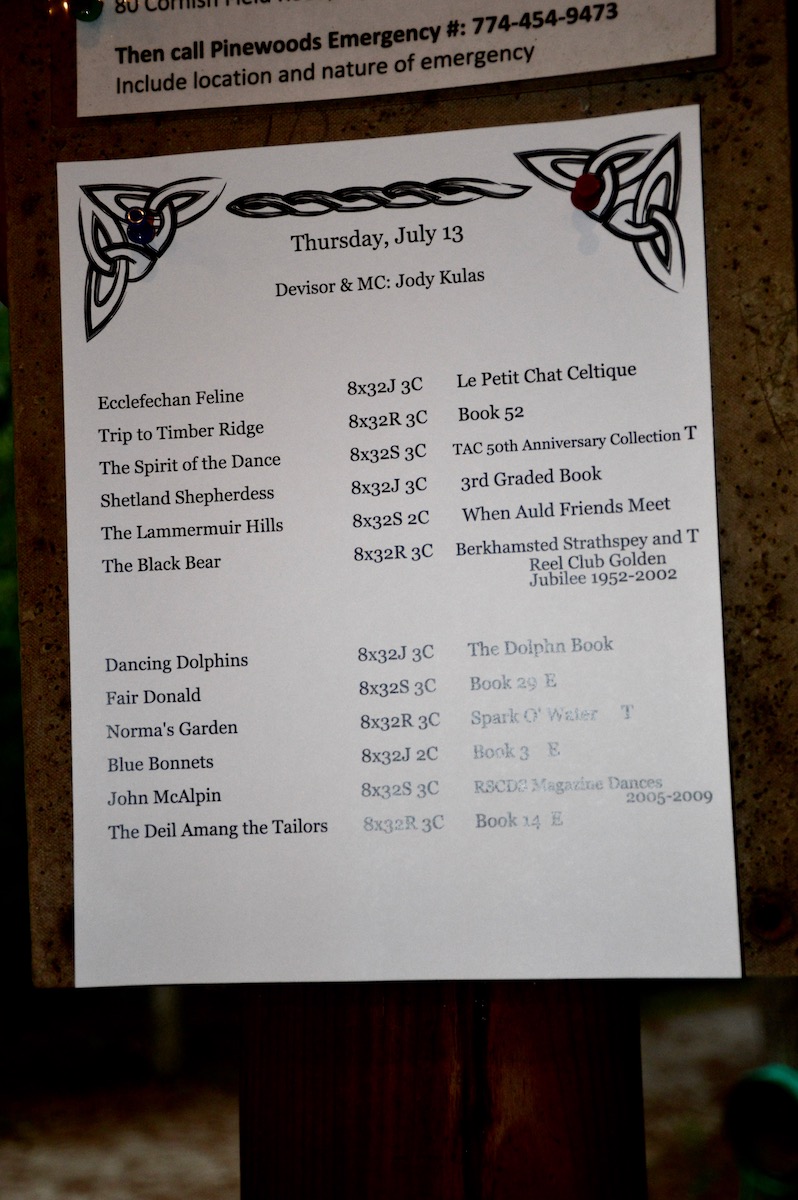 80 Cornish Field
Then call Pinewoods Emergency #: 774-454-9473
Include location and nature of emergency
Thursday, July 13
Devisor & MC: Jody Kulas
Ecclefechan Feline 8x32J 3C Le Petit Chat Celtique
Trip to Timber Ridge 8x32R 3C Book 52
The Spirit of the Dance 8x32S 3C TAC 50th Anniversary Collection T
Shetland Shepherdess 8x32J 3C 3rd Graded Book
The Lammermuir Hills 8x32S 2C When Auld Friends Meet
The Black Bear 8x32R 3C Berkhamsted Strathspey and T
Reel Club Golden
Jubilee 1952-2002
Dancing Dolphins 8x32J 3C The Dolphn Book
Fair Donald 8x32S 3C Book 29 E
Norma's Garden 8x32R 3C Spark O' Water T
Blue Bonnets 8x32J 2C Book 3 E
John McAlpin 8x32S 3C RSCDS Magazine Dances
2005-2009
The Deil Amang the Tailors 8x32R 3C Book 14 E